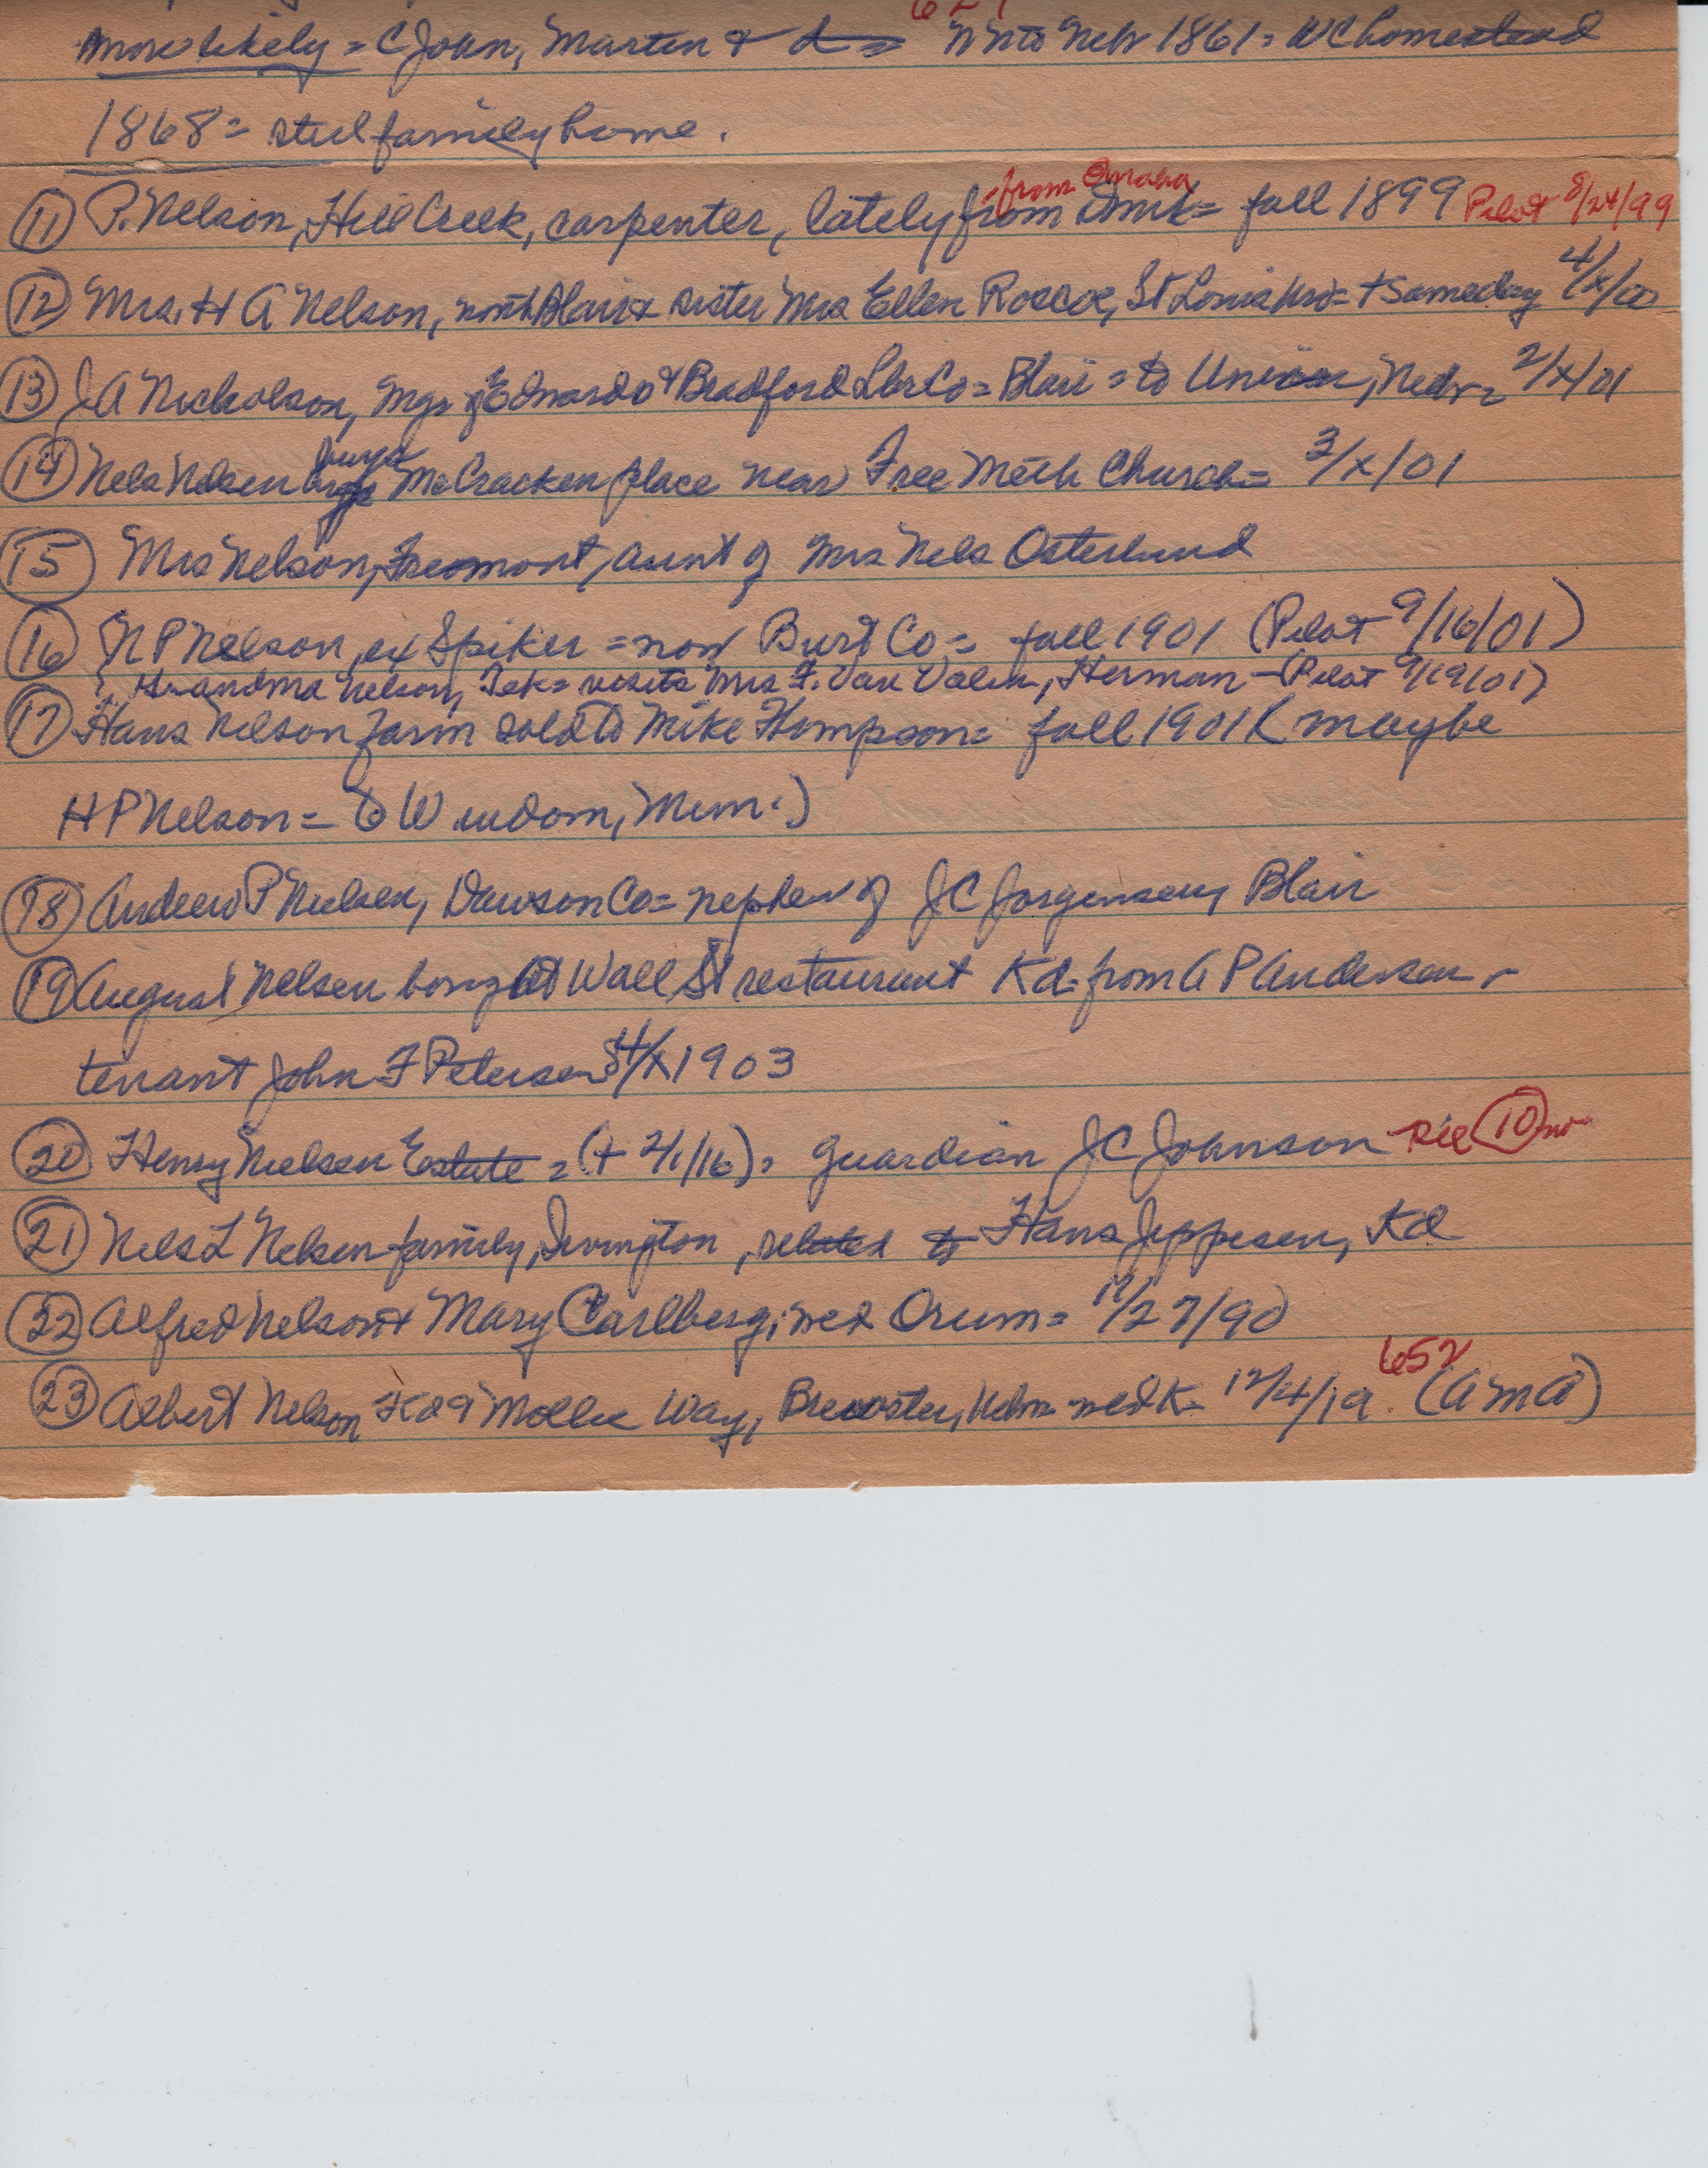 more likely = C John, Martin & to Nebr 1861 = WC homestead
1868 = still family home.
(11) P. Nelson, Hill Creek, carpenter, lately from Dmk = fall 1899 Pilot 8/24/99
from Omaha
(12) Mrs. H A Nelson, north Blair & sister Mrs Ellen Roscoe, St Louis = + same day 4/x/00
(13) J A Nickolson, mgr of Edwards & Bradford Lbr Co = Blair = to Union, Nebr = 2/x/01
(14) Nels Nelsen buys McCracken place near Free Meth Church = 3/x/01
(15) Mrs Nelson, Fremont, aunt of Mrs Nels Osterlund
(16) N P Nelson, ex Spiker = now Burt Co = fall 1901 (Pilot 9/16/01)
Grandma Nelson, Tek = visits Mrs F. Van Valin, Herman - (Pilot 9/19/01)
(17) Hans Nelson farm sold to Mike Thompson = fall 1901 (maybe
H P Nelson = to Windom, Minn.)
(18) Andrew P Nielsen, Dawson Co = nephew of J C Jorgensen, Blair
(19) August Nelsen bought Wall St restaurant Kd. from A P Andersen -
tenant John F Petersen 4/x 1903
(20) Henry Nielsen Estate = (+ 2/1/16) = guardian J C Johnson (10)
(21) Nels L Nelsen family, Irvington, related to Hans Jeppesen, Kd
(22) Alfred Nelson & Mary Carlberg, wed Orum = 11/27/90
652
(23) Albert Nelson Kd & Mollie Way, Brewster, Nebr = wed K = 12/4/19 (AMA)